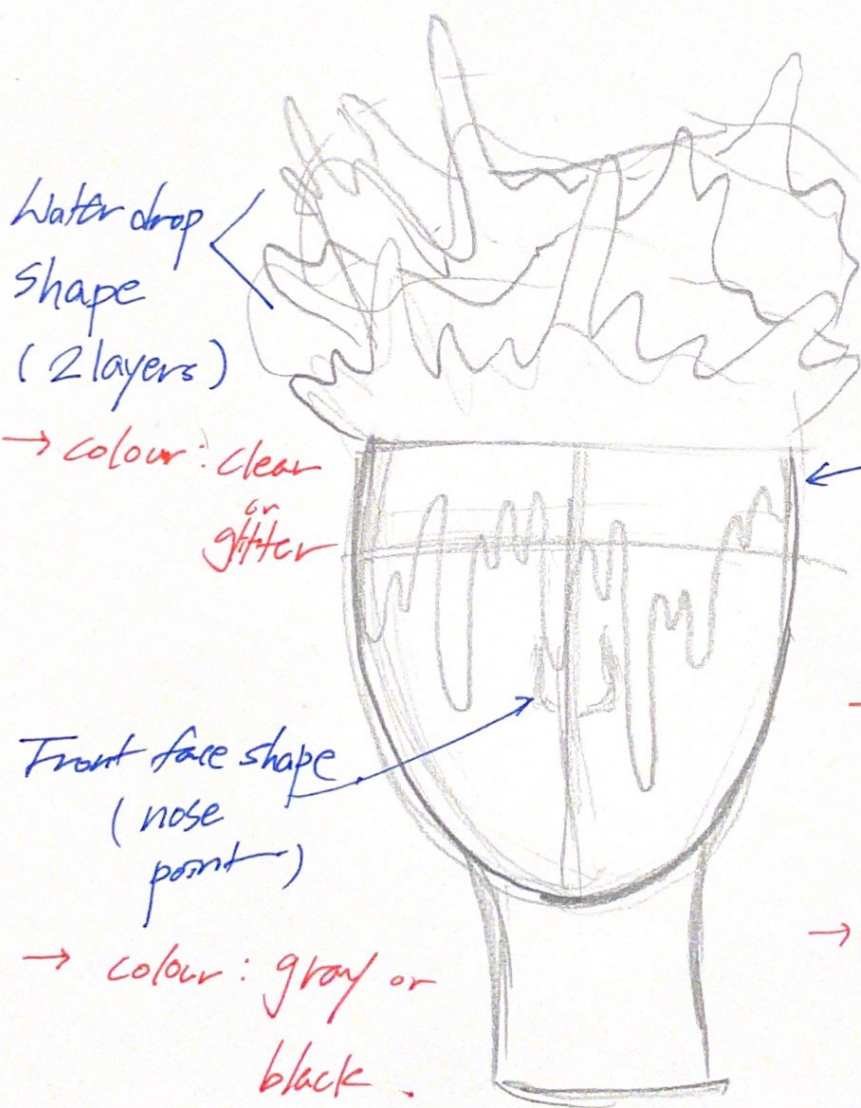 Water drop
shape
(2 layers)
→ colour : clear
or
glitter
Front face shape
(nose
point)
→ colour : gray or
black .